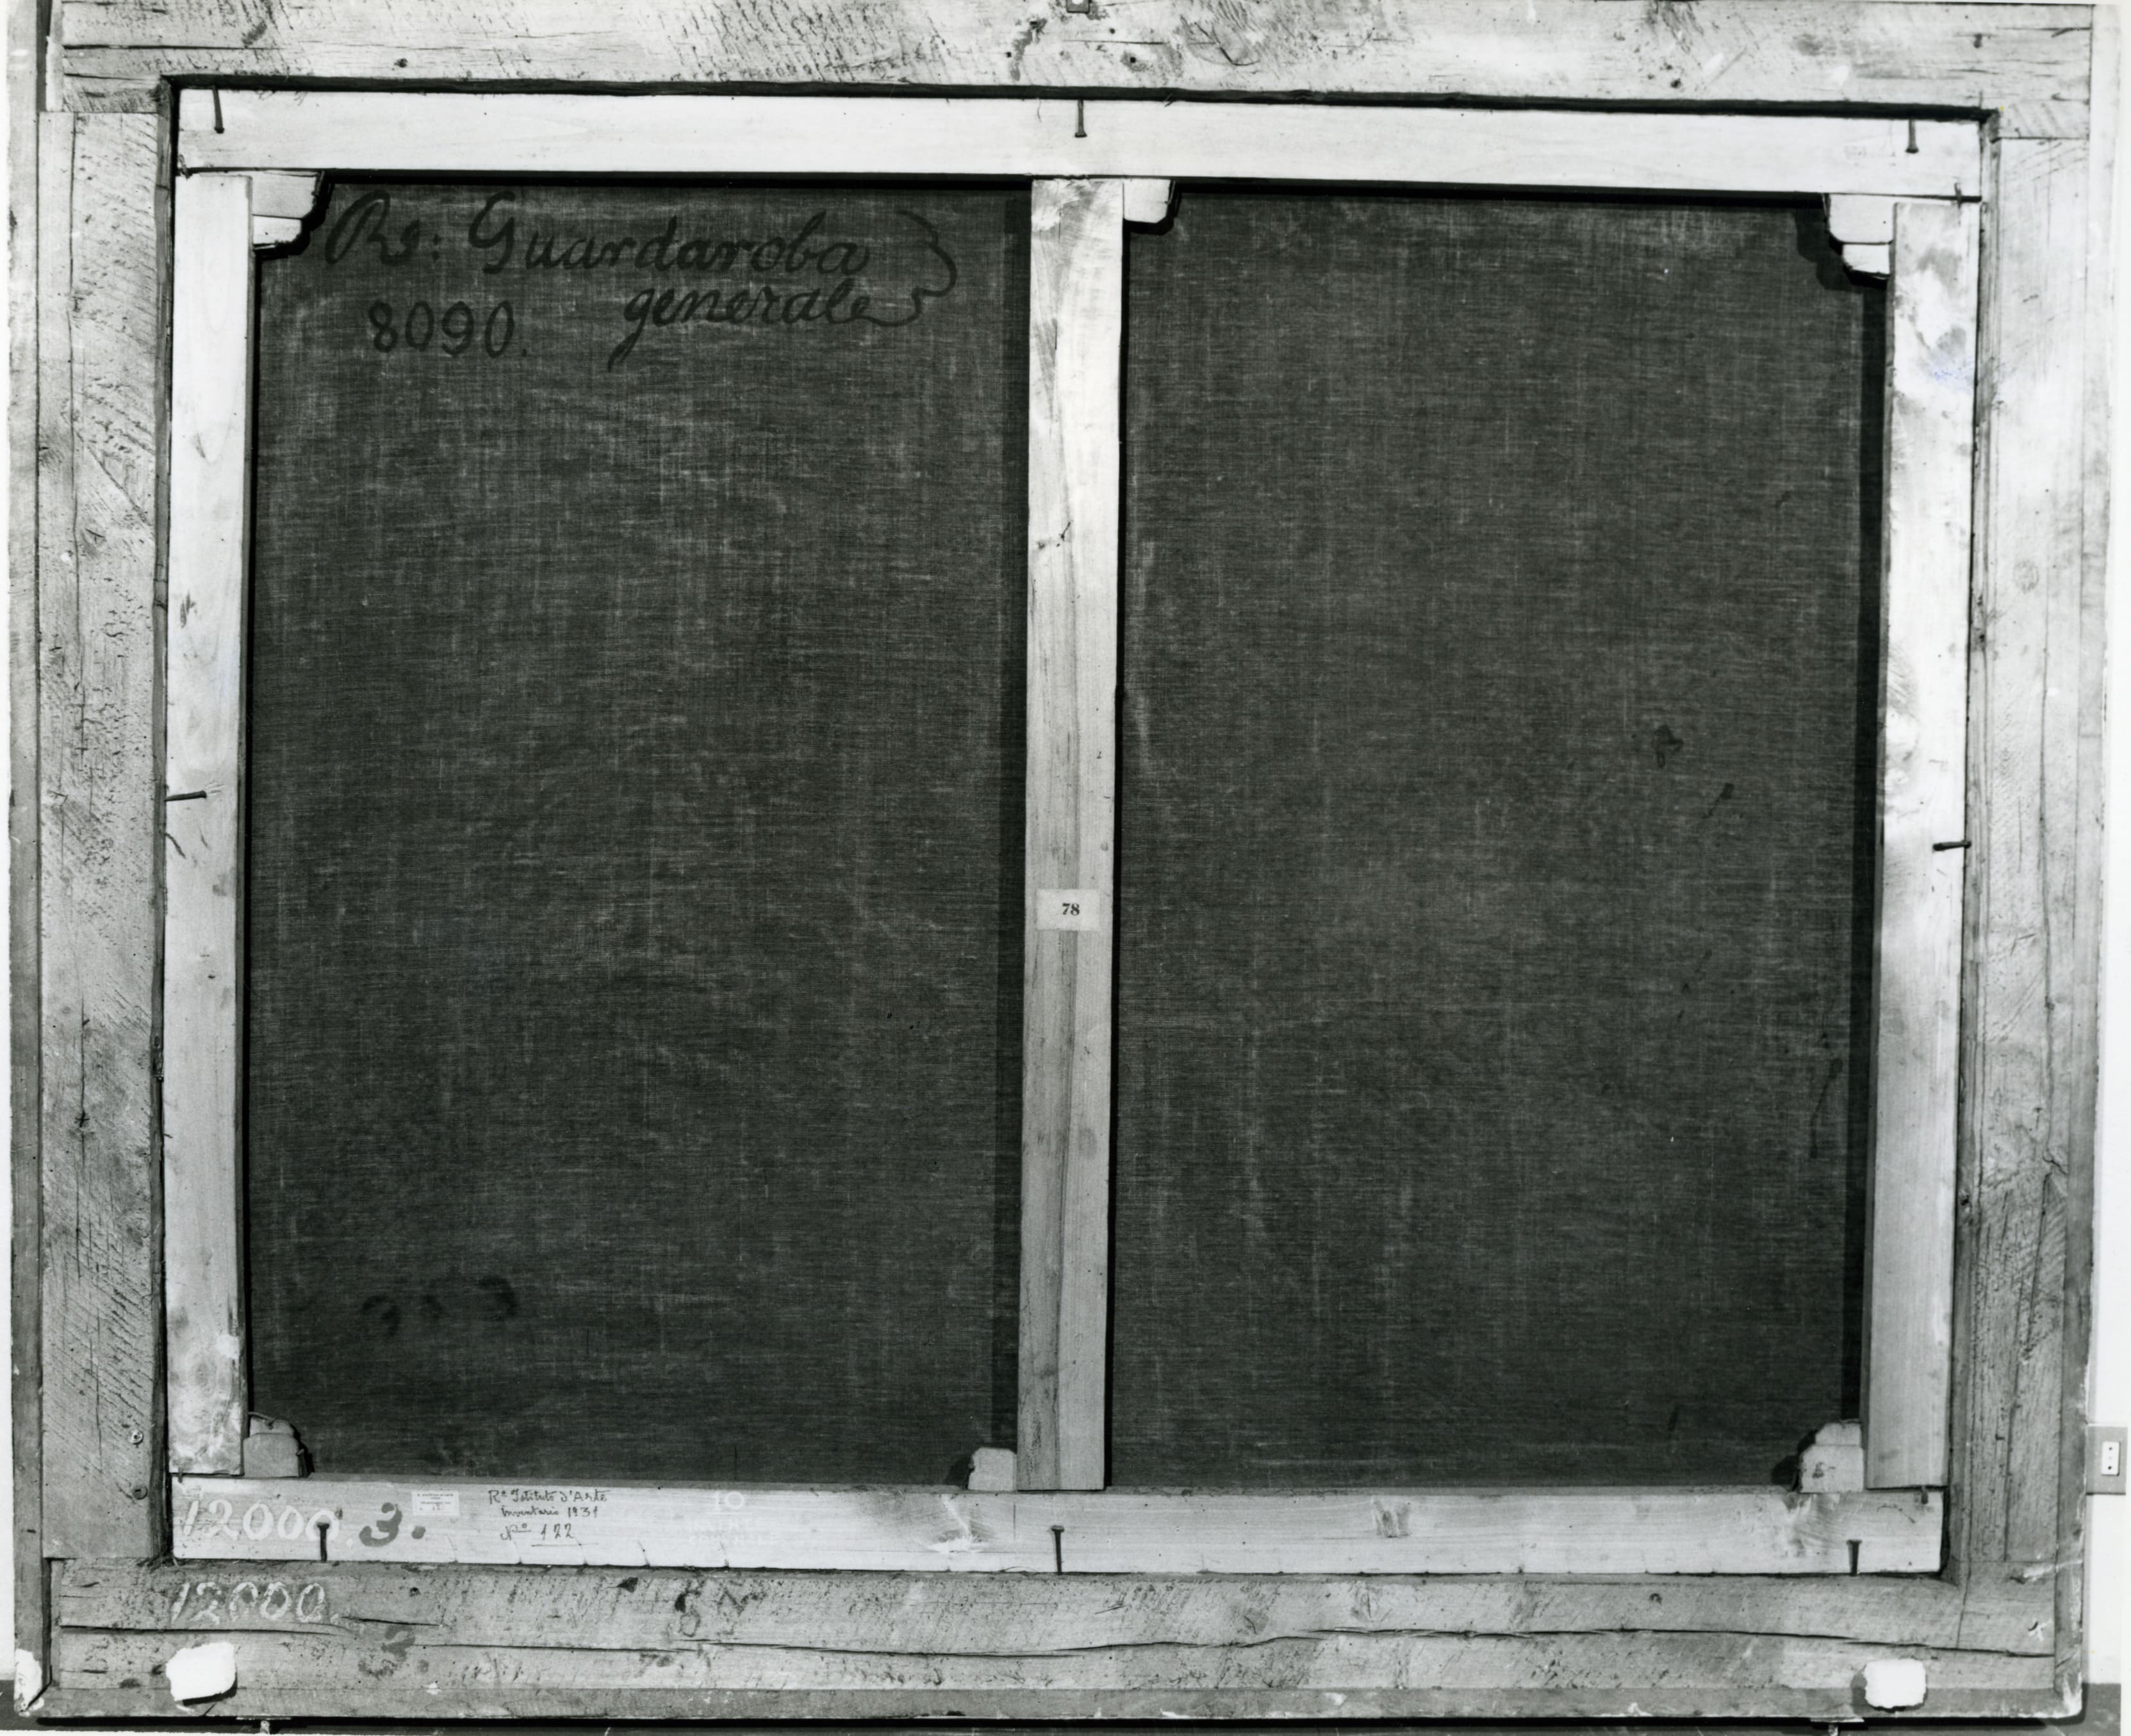 Ra: Guardaroba
generale
8090.
78
12000. 3.
Rº Istituto d'Arte
Inventario 1931
Nº 122
10
12000.
3.